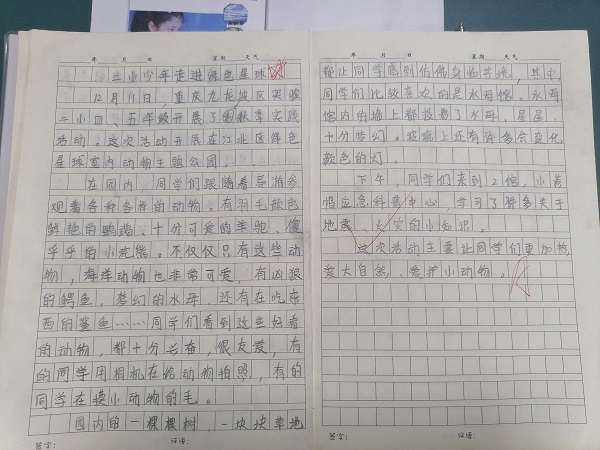 年 月 日 星期 天气
兰亚少年走进绿色星球
12月11日，重庆九龙坡区实验
二小四、五年级开展了秋季实践
活动。这次活动开展在江北区绿色
星球室内动物主题公园。
在园内，同学们跟随着导游参
观着各种各样的动物。有羽毛颜色
鲜艳的鹦鹉、十分可爱的羊驼、傻
乎乎的小浣熊。不仅仅只有这些动
物，海洋动物也非常可爱，有凶狠
的鳄鱼，梦幻的水母，还有在吃东
西的鲨鱼……同学们看到这些好看
的动物，都十分兴奋，很友爱，有
的同学用相机在给动物拍照，有的
同学在摸小动物的毛。
园内的一棵棵树，一块块草地
签字： 评语：
年 月 日 星期 天气
都让同学感到仿佛身临其境，其中，
同学们比较喜欢的是水母馆。水母
馆内的墙上都投影了水母、星星，
十分梦幻。玻璃上还有许多会变化
颜色的灯。
下午，同学们来到2馆，小黄
帽应急科普中心，学习了许多关于
地震、火灾的小知识。
这次活动主要让同学们更加热
爱大自然、爱护小动物。
签字： 评语：